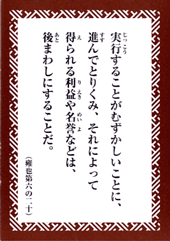 実行することがむずかしいことに、
進んでとりくみ、それによって
得られる利益や名誉などは、
後まわしにすることだ。
(雍也第六の二十)